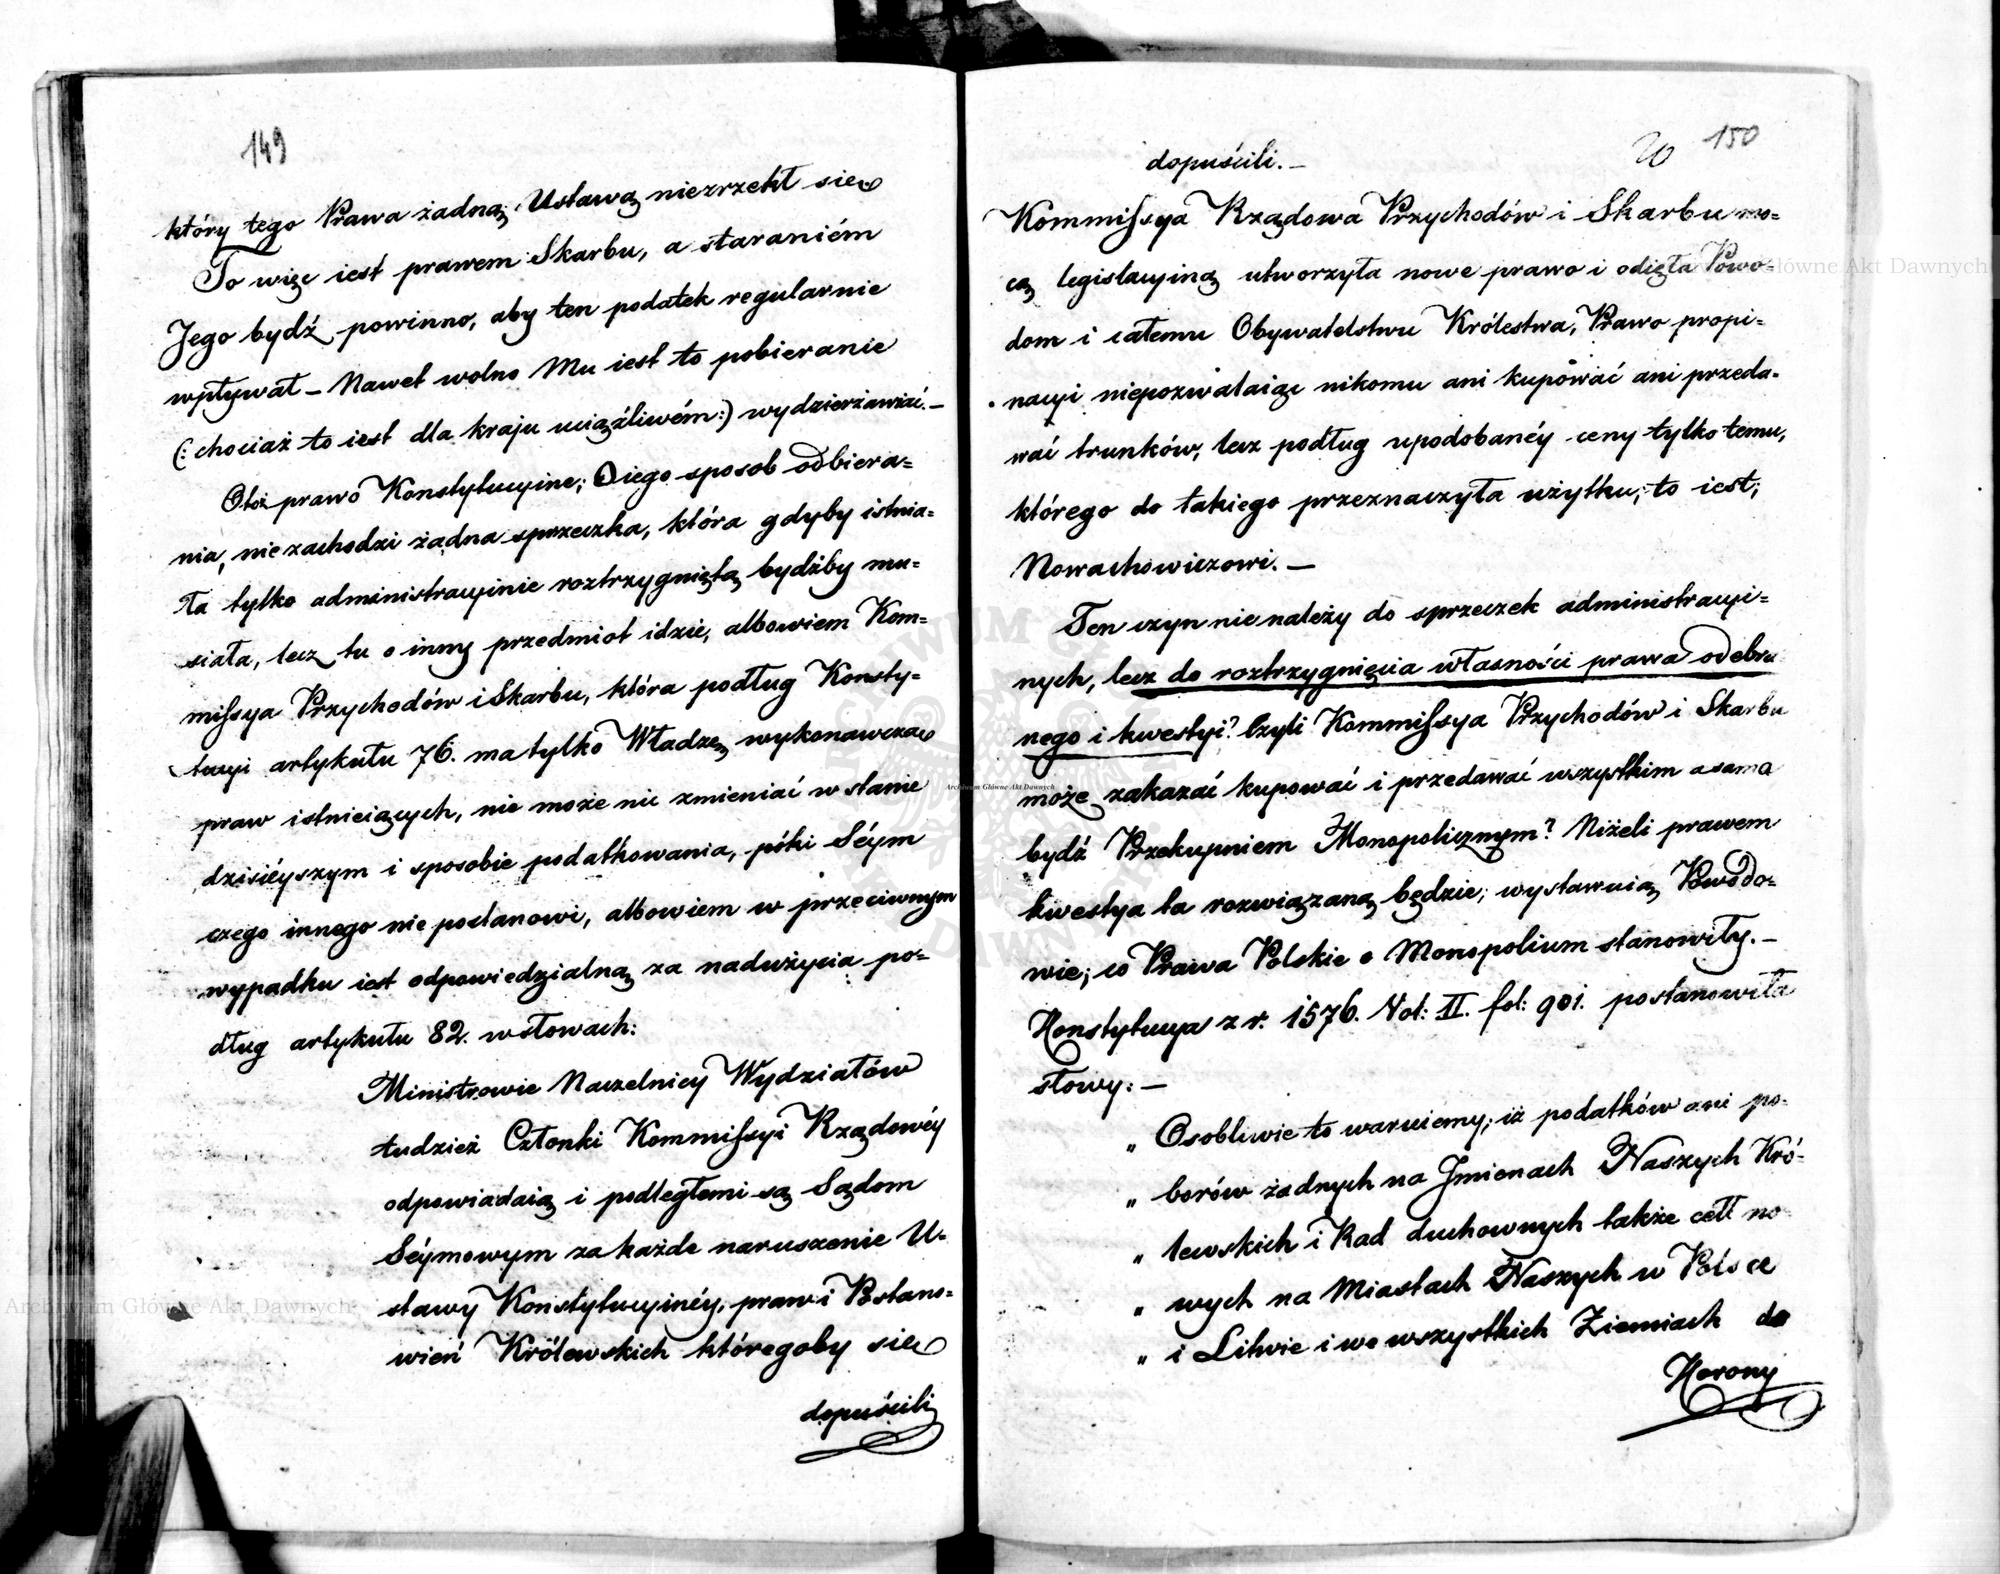 149
który tego Prawa żadną Ustawą niezrzekł się
To więc iest prawem Skarbu, a staraniém
Jego bydź powinno, aby ten podatek regularnie
wpływał – Nawet wolno Mu iest to pobieranie
(: chociaż to iest dla kraju uciążliwém :) wydzierżawiać. –
Otoż prawo Konstytucyine; O iego sposob odbiera=
nia, nie zachodzi żadna sprzeczka, która gdyby istnia=
ła tylko administracyinie roztrzygniętą bydźby mu=
siała, lecz tu o inny przedmiot idzie, albowiem Kom=
missya Przychodów i Skarbu, która podług Konsty=
tucyi artykułu 76. ma tylko Władzę wykonawczą
praw istnieiących, nie może nic zmieniać w stanie
dzisiéyszym i sposobie podatkowania, póki Séym
czego innego nie postanowi, albowiem w przeciwnym
wypadku iest odpowiedzialną za nadużycia po=
dług artykułu 82. w słowach:
Ministrowie Naczelnicy Wydziałów
tudzież Członki Kommissyi Rządowéy
odpowiadaią i podległemi są Sądom
Séymowym za każde naruszenie U=
stawy Konstytucyinéy, praw i Postano=
wień Królewskich któregoby się
dopuścili
150
dopuścili. –
Kommissya Rządowa Przychodów i Skarbu mo=
cą legislacyiną utworzyła nowe prawo i odięła Powo=
dom i całemu Obywatelstwu Królestwa, Prawo propi=
nacyi niepozwalaiąc nikomu ani kupować ani przeda=
wać trunków, lecz podług upodobanéy ceny tylko temu,
którego do takiego przeznaczyła użytku, to iest;
Nowachowiczowi. –
Ten czyn nie należy do sprzeczek administracyi=
nych, lecz do roztrzygnięcia własności prawa odebra
nego i kwestyi? Czyli Kommissya Przychodów i Skarbu
może zakazać kupować i przedawać wszystkim a sama
bydź Przekupniem Monopolicznym? Niżeli prawem
kwestya ta rozwiązaną będzie; wystawuią Powodo=
wie; co Prawa Polskie o Monopolium stanowiły. –
Konstytucya z r. 1576. Vol: II. fol: 901. postanowiła
słowy: –
„ Osobliwie to waruiemy, iż podatków ani po=
„ borów żadnych na Jmienach Naszych Kró=
„ lewskich i Rad duchownych także cełł no
„ wych na Miastach Naszych w Polsce
„ i Litwie i we wszystkich Ziemiach do
Korony
Archiwum Główne Akt Dawnych
Archiwum Główne Akt Dawnych